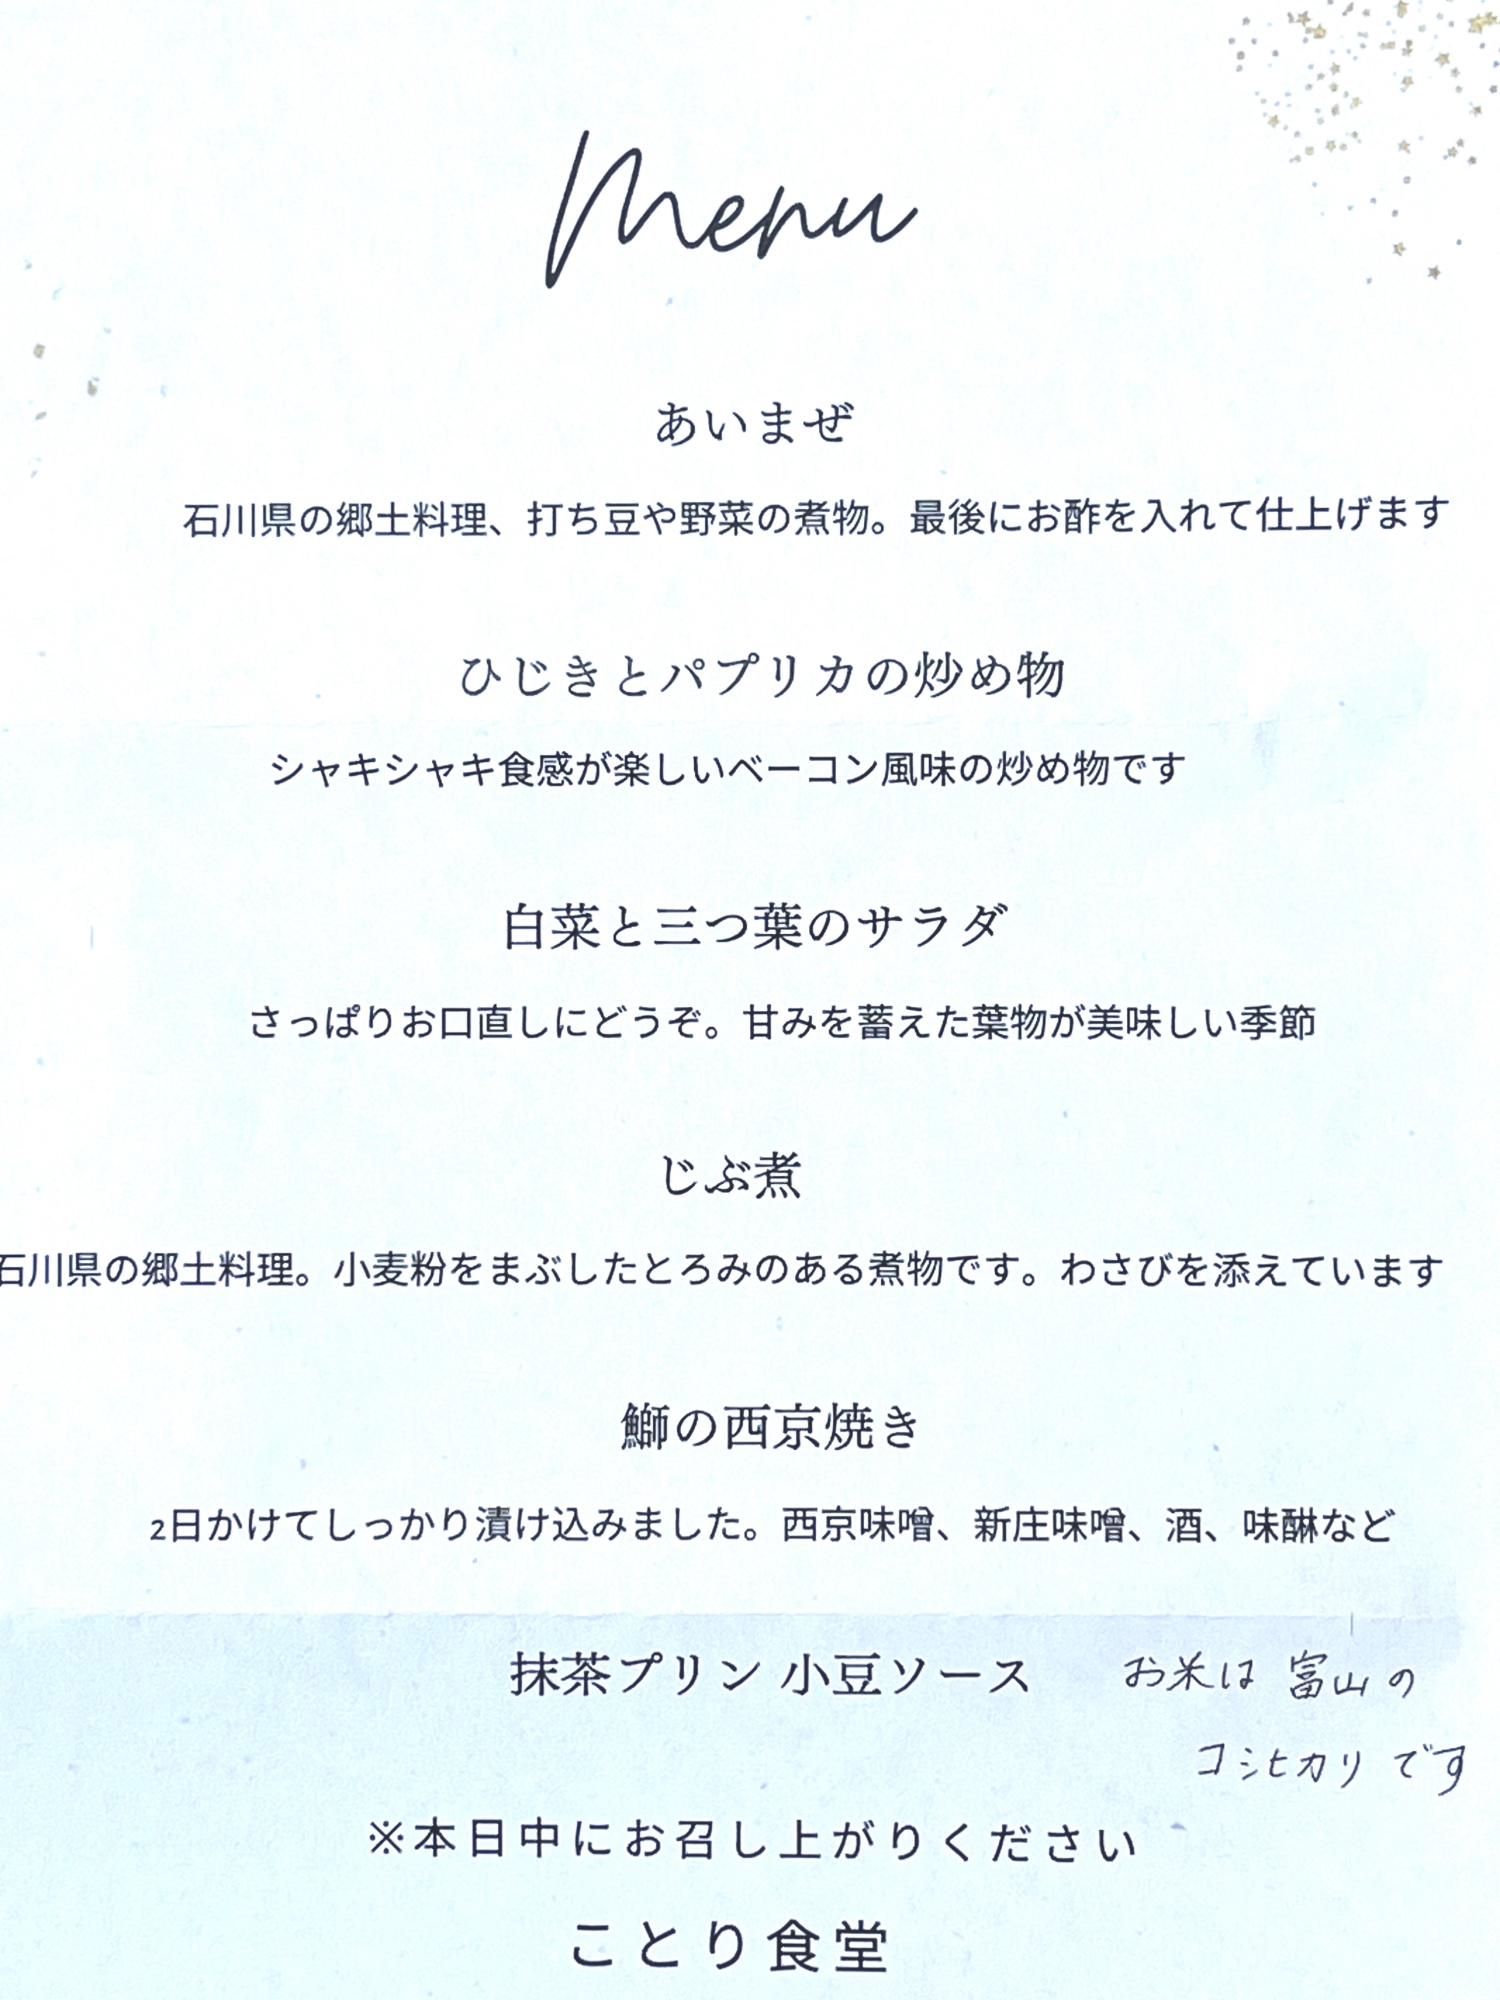 Menu
あいまぜ
石川県の郷土料理、打ち豆や野菜の煮物。最後にお酢を入れて仕上げます
ひじきとパプリカの炒め物
シャキシャキ食感が楽しいベーコン風味の炒め物です
白菜と三つ葉のサラダ
さっぱりお口直しにどうぞ。甘みを蓄えた葉物が美味しい季節
じぶ煮
石川県の郷土料理。小麦粉をまぶしたとろみのある煮物です。わさびを添えています
鰤の西京焼き
2日かけてしっかり漬け込みました。西京味噌、新庄味噌、酒、味醂など
抹茶プリン 小豆ソース
お米は 富山の
コシヒカリです
※本日中にお召し上がりください
ことり食堂